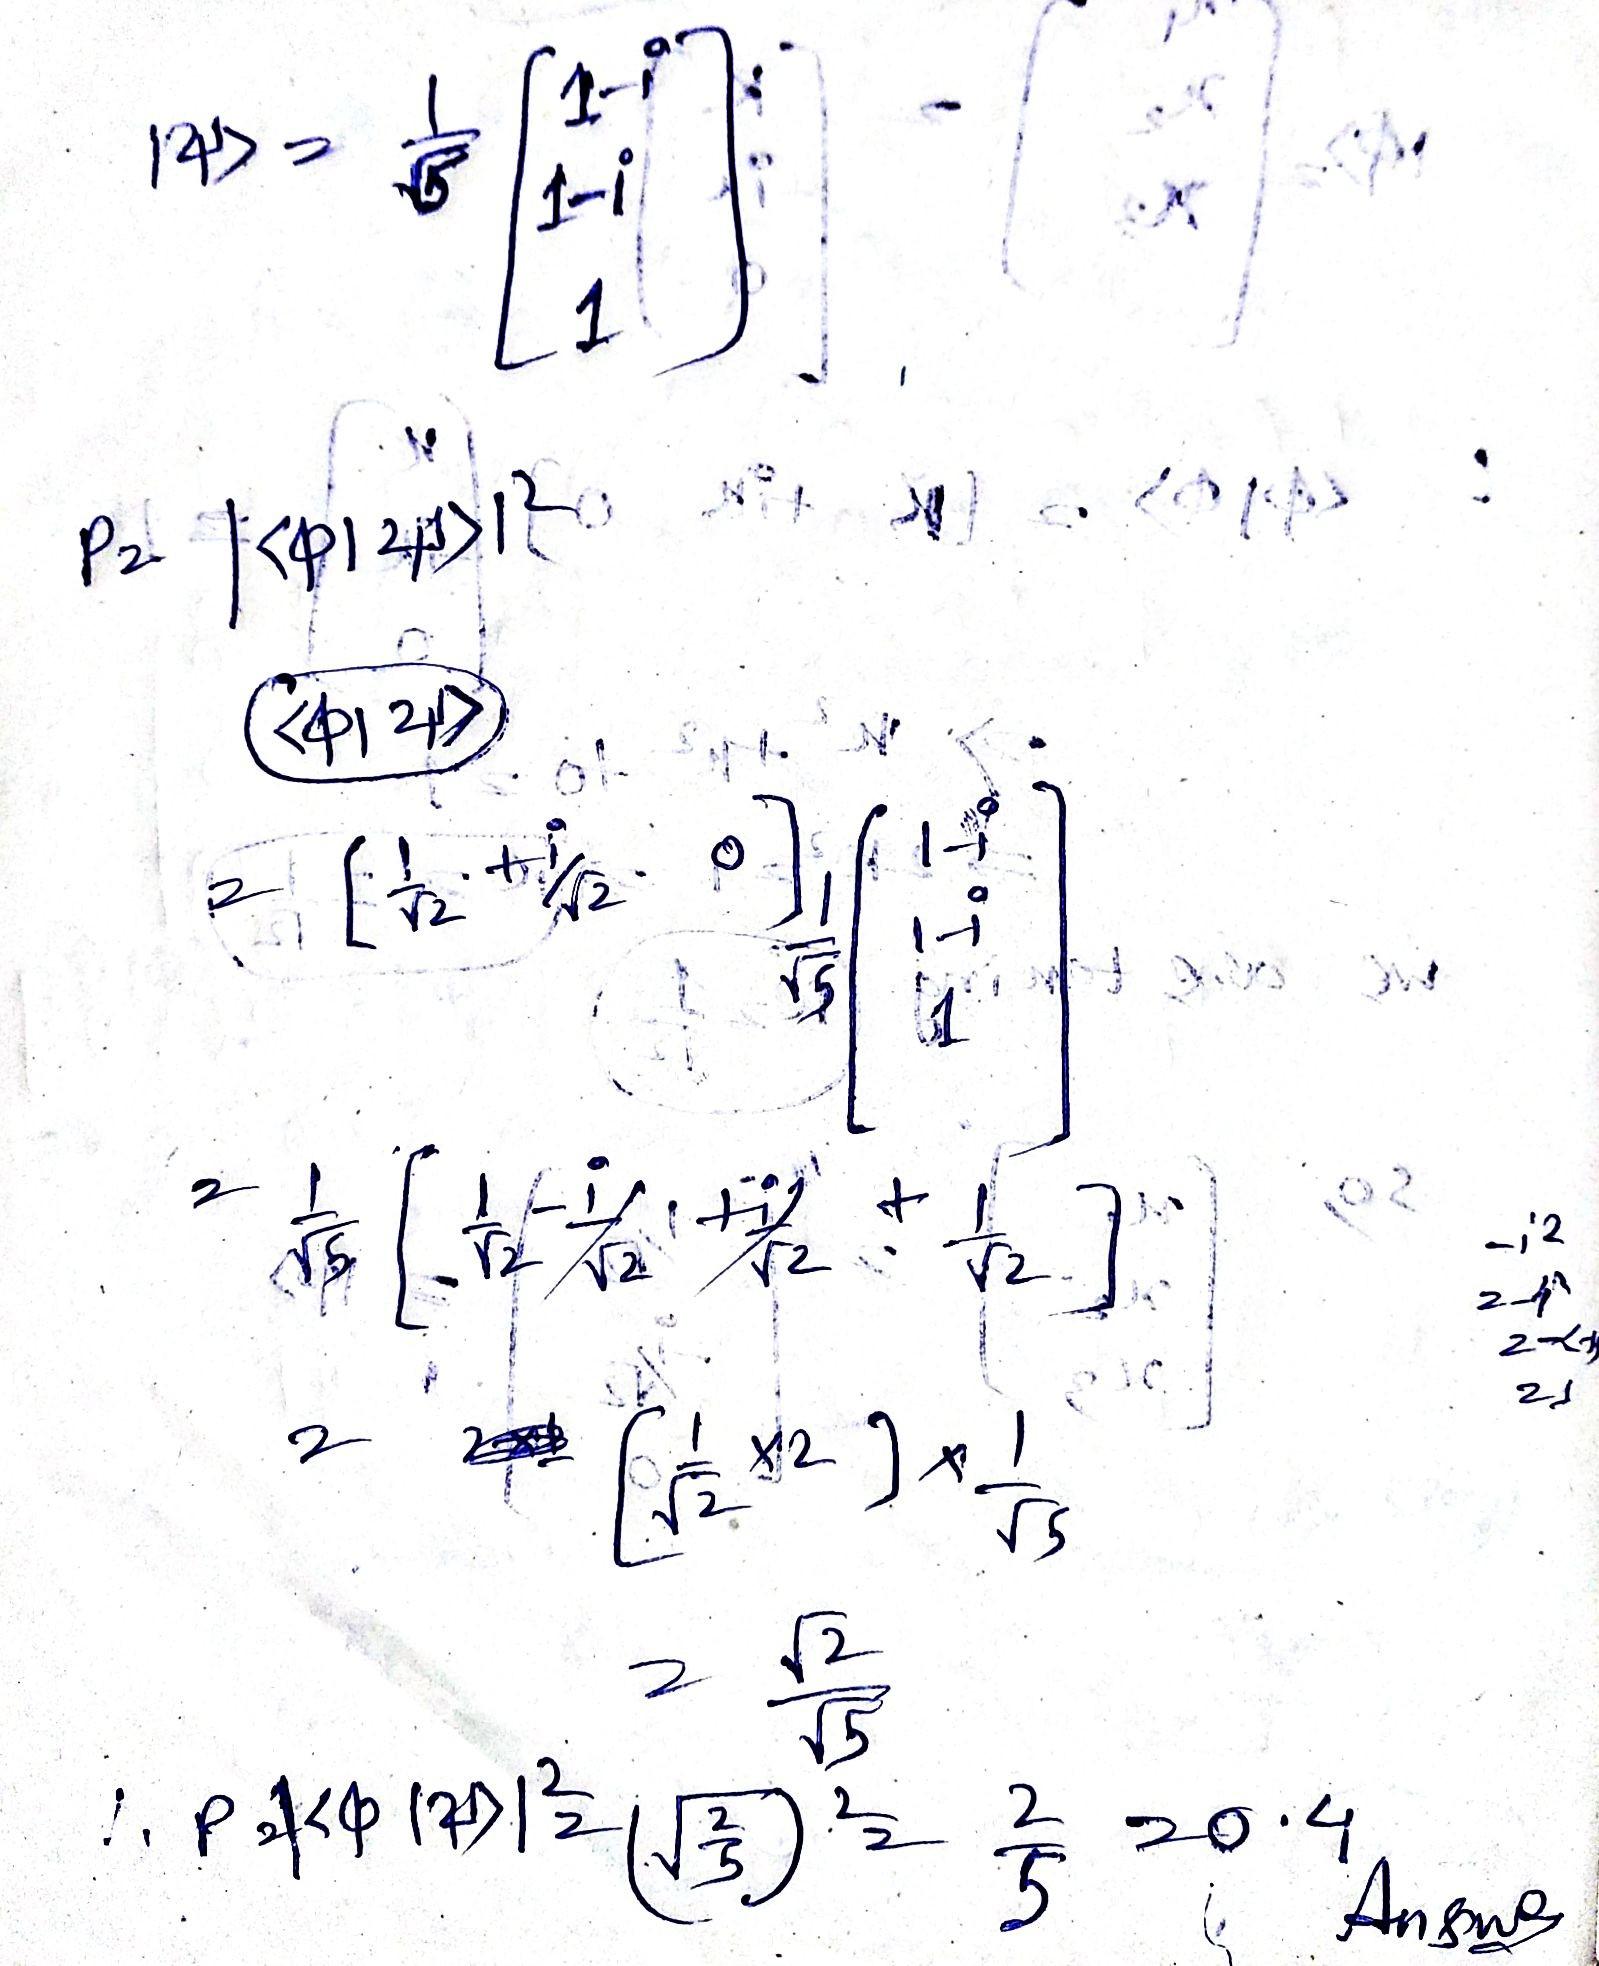 |ψ> = 1/√5 [1-i 1-i 1]
P = |<φ|ψ>|²
<φ|ψ>
= [1/√2 +i/√2 0] 1/√5 [1-i 1-i 1]
= 1/√5 [1/√2 -i/√2 +i/√2 + 1/√2]
-i²
= [1/√2 ×2] × 1/√5
= √2/√5
∴ P = |<φ|ψ>|² = (√2/5)² = 2/5 = 0.4
Answer